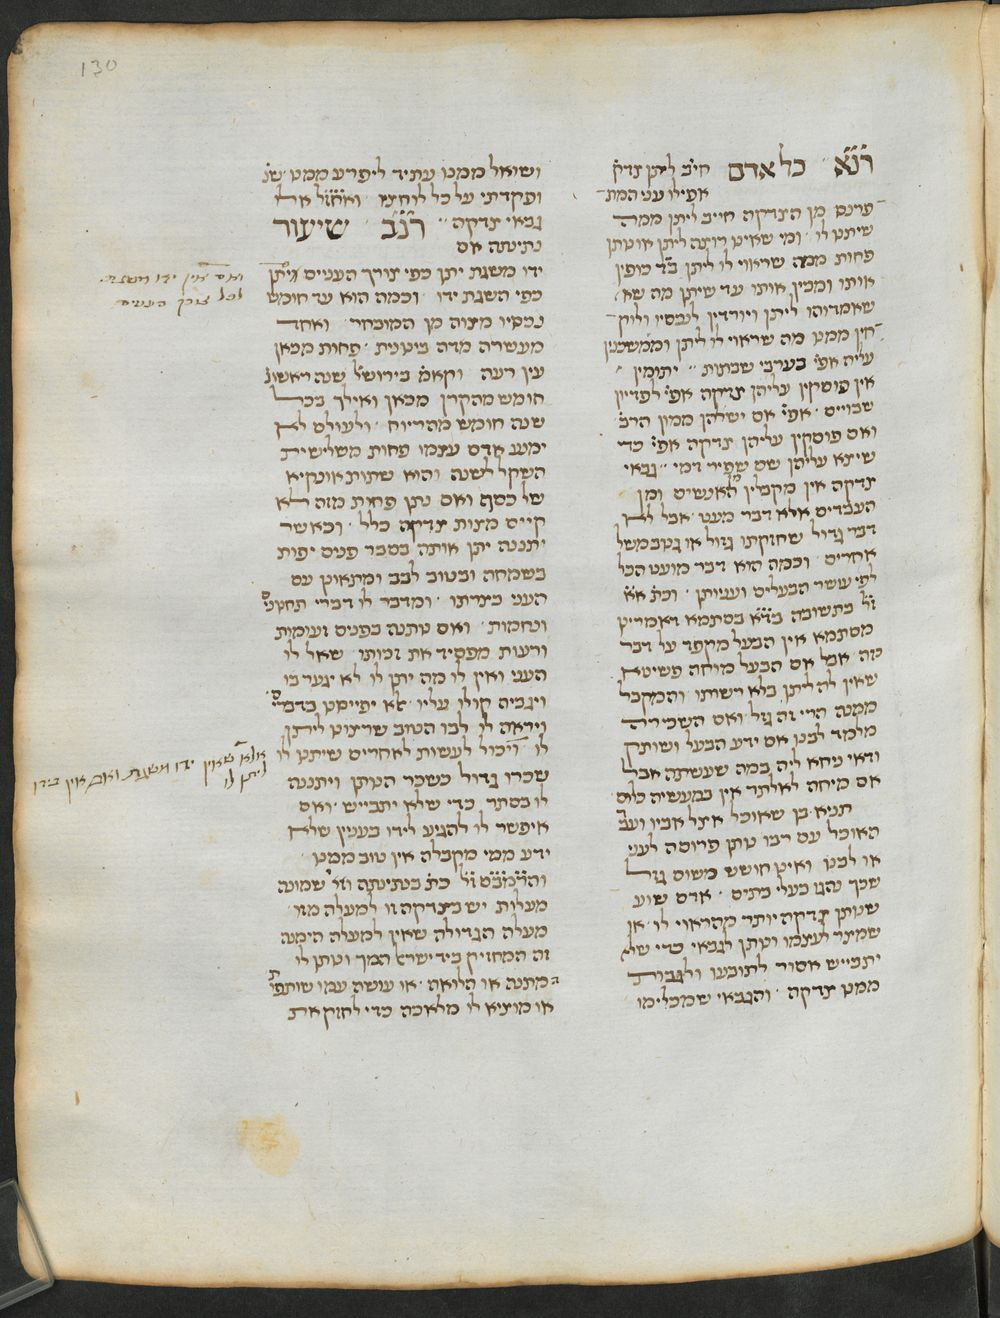 130
רנ״א כל אדם חייב ליתן צדק׳
אפילו עני המת-
פרנס מן הצדקה חייב ליתן ממה
שיתנו לו ׳ ומי שאינו רוצה ליתן או נותן
פחות ממה שראוי לו ליתן ב״ד כופין
אותו ומכין אותו עד שיתן מה שא׳
שאמדוהו ליתן ויורדין לנכסיו ולוק-
-חין ממנו מה שראוי לו ליתן וממשכנין
עליה אפי׳ בערבי שבתות ״ יתומין
אין פוסקין עליהן צדקה אפי׳ לפדיון
שבויים ׳ אפי׳ אם יש להן ממון הרב׳
ואם פוסקין עליהן צדקה אפי׳ כדי
שיצא עליהן שם שפיר דמי ״ גבאי
צדקה אין מקבלין מהאנשים ומן
העבדים אלא דבר מועט ׳ אבל לא
דבר גדול שחזקתו גזול או גנוב משל
אחרים ׳ וכמה הוא דבר מועט הכל
לפי עושר הבעלים ועניותן ׳ וכת׳ א״א
ז״ל בתשובה בד״א בסתמא דאמרינן
מסתמא אין הבעל מקפד על דבר
כזה ׳ אבל אם הבעל מוחה פשיטא
שאין לה ליתן בלא רשותו ׳ והמקבל
ממנה הרי זה גזל ואם השכירה
מלמד לבנו אם ידע הבעל ושותק
ודאי ניחא ליה במה שעשתה אבל
אם מיחה לאלתר אין במעשיה כלום
תניא בן שאוכל אצל אביו ועב׳
האוכל עם רבו נותן פרוסה לעני
או לבנו ואינו חושש משום גזל
שכך נהגו בעלי בתים ׳ אדם שוע
שנותן צדקה יותר מהראוי לו ׳ או
שמיצר לעצמו ונותן לגבאי כדי שלא
יתבייש אסור לתובעו ולגבות
ממנו צדקה ׳ והגבאי שמכלימו
ושואל ממנו עתיד ליפרע ממנו ׳ שנ׳
ופקדתי על כל לוחציו ואחז״ל אלו
גבאי צדקה ״ רנ״ב שיעור
נתינתה אם
ידו משגת יתן כפי צורך העניים ויתן
כפי השגת ידו ׳ וכמה הוא עד חומש
נכסיו מצוה מן המובחר ׳ ואחד
מעשרה מדה בינונית ׳ פחות מכאן
עין רעה וקאמ׳ בירושל׳ שנה ראשונ׳
חומש מהקרן מכאן ואילך בכל
שנה חומש מהריוח ׳ ולעולם לא
ימנע אדם עצמו פחות משלישית
השקל לשנה והוא שתות אונקיא
של כסף ואם נתן פחות מזה לא
קיים מצות צדקה כלל ׳ וכאשר
יתננה יתן אותה בסבר פנים יפות
בשמחה ובטוב לבב ומתאונן עם
העני בצרתו ׳ ומדבר לו דברי תחנוני׳
ונחמות ׳ ואם נותנה בפנים זעומות
ורעות מפסיד את זכותו ׳ שאל לו
העני ואין לו מה יתן לו לא יגער בו
ויגביה קולו עליו ׳ אלא יפייסנו בדברי׳
ויראה לו לבו הטוב שרוצנו ליתן
לו ׳ ויכול לעשות לאחרים שיתנו לו
שכרו גדול כשכר הנותן ויתננה
לו בסתר כדי שלא יתבייש ׳ ואם
איפשר לו להגיע לידו בענין שלא
ידע ממי מקבלה אין טוב ממנו
והרמב״ם ז״ל כת׳ בנתינתה וזל׳ שמונה
מעלות יש בצדקה זו למעלה מזו
מעלה הגדולה שאין למעלה הימנה
זה המחזיק ביד ישראל המך ונותן לו
מתנה או הלואה ׳ או עושה עמו שותפו׳
או מוציא לו מלאכה כדי לחזק את
ואם אין ידו משגת
לכל צורך העניים
אלא שאין ידו משגת ואם אין בידו
ליתן לו